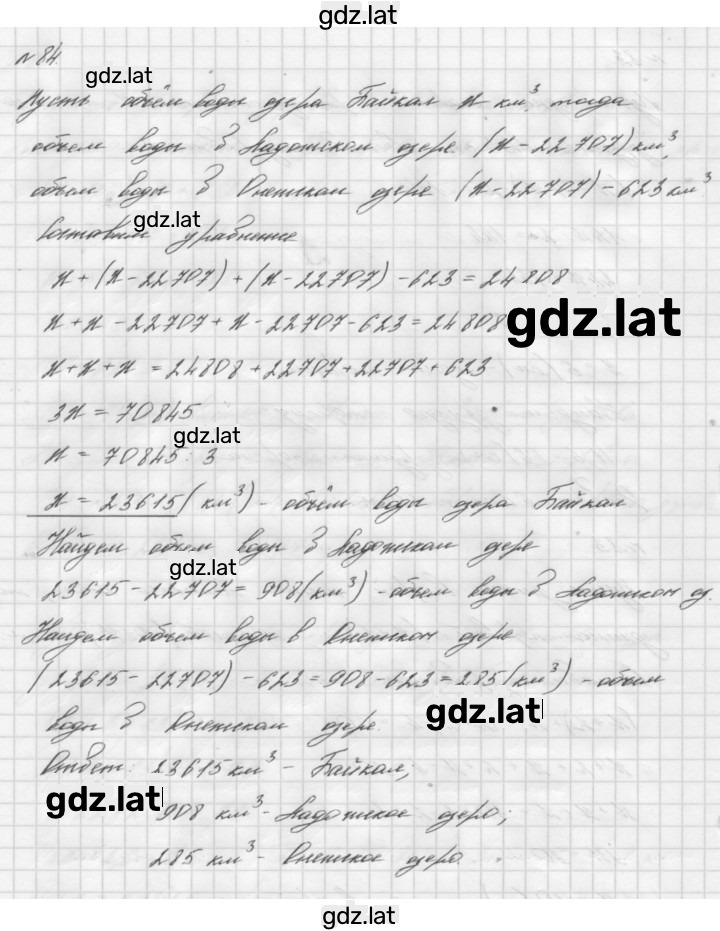 gdz.lat
№ 84.
gdz.lat
Пусть объём воды озера Байкал x км³, тогда
объем воды в Ладожском озере (x - 22 707) км³,
объем воды в Онежском озере (x - 22707) - 623 км³
gdz.lat
Составим уравнение
x + (x - 22707) + (x - 22707) - 623 = 24808
x + x - 22707 + x - 22707 - 623 = 24808
gdz.lat
x + x + x = 24808 + 22707 + 22707 + 623
3x = 70845
gdz.lat
x = 70845 : 3
x = 23615 (км³) - объём воды озера Байкал
Найдем объем воды в Ладожском озере
gdz.lat
23615 - 22707 = 908 (км³) - объем воды в Ладожском оз.
Найдем объем воды в Онежском озере
(23615 - 22707) - 623 = 908 - 623 = 285 (км³) - объем
gdz.lat
воды в Онежском озере.
Ответ: 23615 км³ - Байкал;
gdz.lat
908 км³ - Ладожское озеро;
285 км³ - Онежское озеро.
gdz.lat